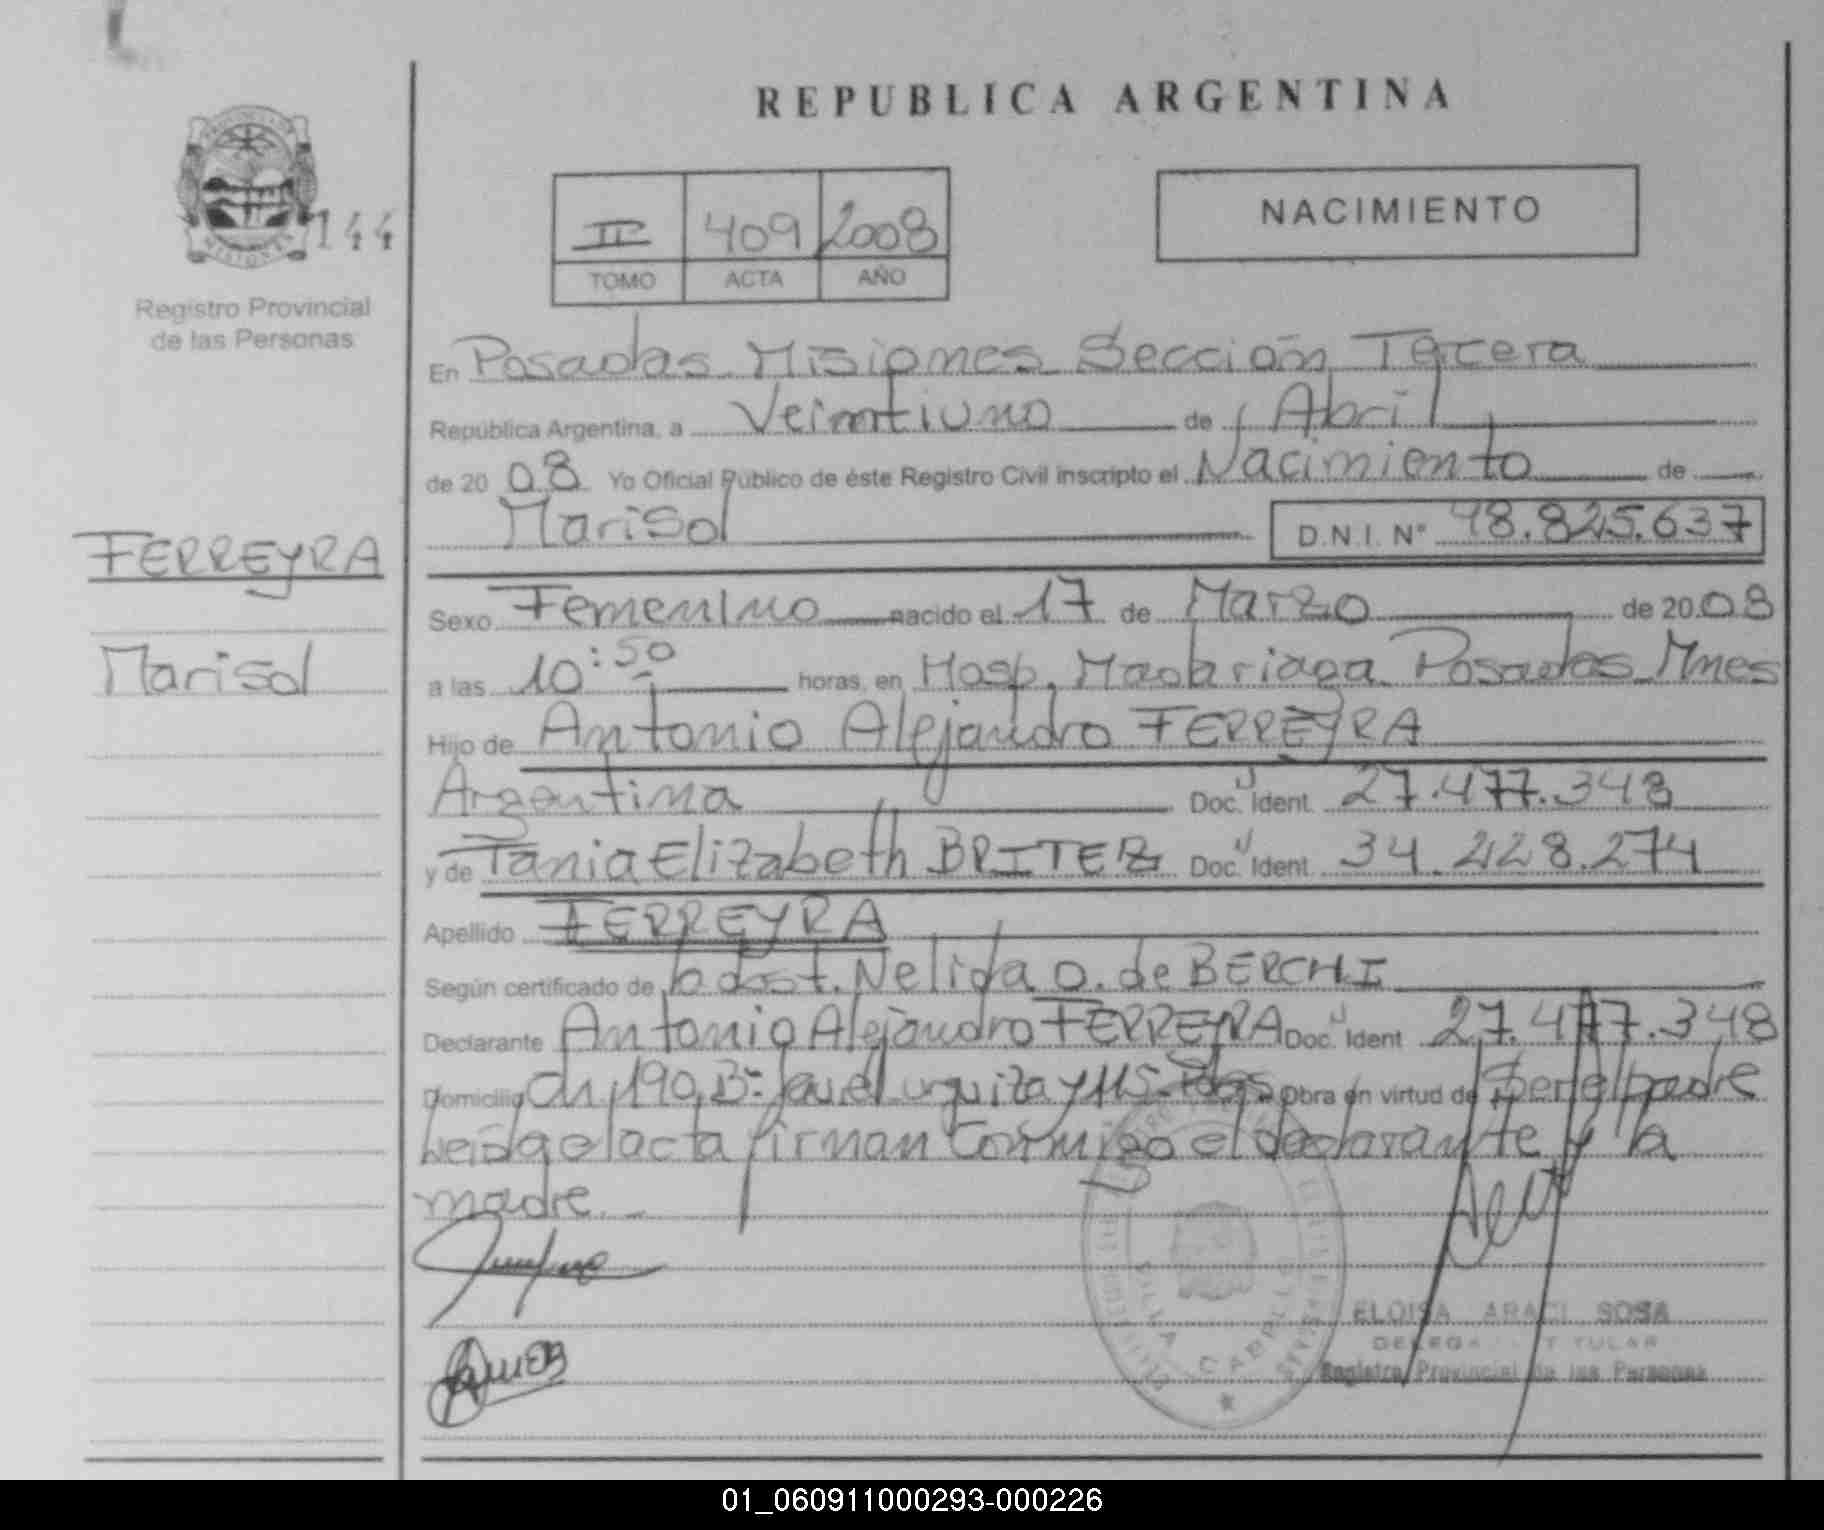 REPUBLICA ARGENTINA
144
Registro Provincial
de las Personas
II 409 2008
TOMO ACTA AÑO
NACIMIENTO
En Posadas Misiones Sección Tercera
República Argentina, a Veintiuno de Abril
de 20 08 Yo Oficial Público de éste Registro Civil inscripto el Nacimiento de
Marisol D.N.I. Nº 48.825.637
FERREYRA
Marisol
Sexo Femenino nacido el 17 de Marzo de 20 08
a las 10:50 horas, en Hosp. Madariaga Posadas Mnes
Hijo de Antonio Alejandro FERREYRA
Argentina Doc. Ident. 27.477.348
y de Tania Elizabeth BRITEZ Doc. Ident. 34.228.274
Apellido FERREYRA
Según certificado de obst. Nelida O. de BERCHI
Declarante Antonio Alejandro FERREYRA Doc. Ident 27.477.348
Domicilio Ch 190 Bº urquiza Pdas Obra en virtud de Ser el padre
Leida el acta firman conmigo el declarante y la
madre.
VILLA CABELLO
ELOISA ARACI SOSA
TITULAR
Registro Provincial de las Personas
01_060911000293-000226